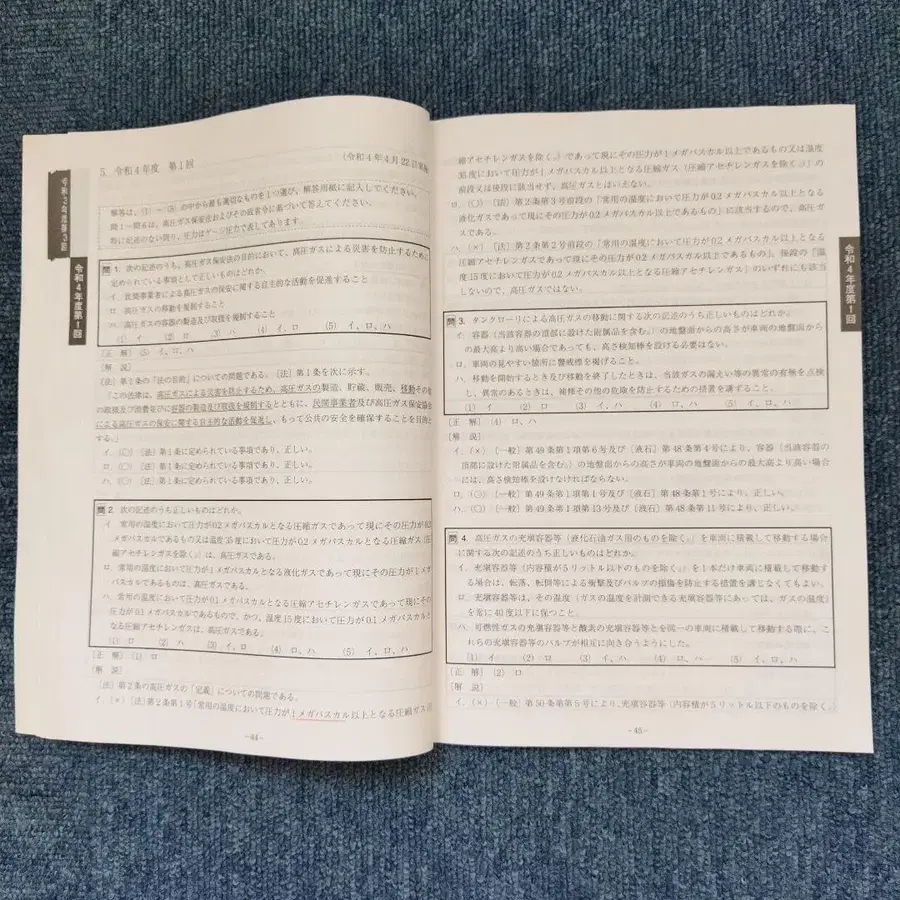 令和3年度第3回
令和4年度第1回
5. 令和4年度 第1回 (令和4年4月22日実施)
解答は、(1)~(5)の中から最も適切なものを1つ選び、解答用紙に記入してください。
問1~問8は、高圧ガス保安法およびその政省令に基づいて答えてください。
特に記述のない限り、圧力はゲージ圧力で表してあります。
問1. 次の記述のうち、高圧ガス保安法の目的において、高圧ガスによる災害を防止するために
定められている事項として正しいものはどれか。
イ. 民間事業者による高圧ガスの保安に関する自主的な活動を促進すること
ロ. 高圧ガスの移動を規制すること
ハ. 高圧ガスの容器の製造及び取扱を規制すること
(1) イ (2) ロ (3) ハ (4) イ、ロ (5) イ、ロ、ハ
[正 解] (5) イ、ロ、ハ
[解 説]
[法] 第1条の「法の目的」についての問題である。[法] 第1条を次に示す。
「この法律は、高圧ガスによる災害を防止するため、高圧ガスの製造、貯蔵、販売、移動その他
の取扱及び消費並びに容器の製造及び取扱を規制するとともに、民間事業者及び高圧ガス保安協会
による高圧ガスの保安に関する自主的な活動を促進し、もって公共の安全を確保することを目的と
する。」
イ. (○) [法] 第1条に定められている事項であり、正しい。
ロ. (○) [法] 第1条に定められている事項であり、正しい。
ハ. (○) [法] 第1条に定められている事項であり、正しい。
問2. 次の記述のうち正しいものはどれか。
イ. 常用の温度において圧力が0.2メガパスカルとなる圧縮ガスであって現にその圧力が0.2
メガパスカルであるもの又は温度35度において圧力が0.2メガパスカルとなる圧縮ガス(圧
縮アセチレンガスを除く。)は、高圧ガスである。
ロ. 常用の温度において圧力が1メガパスカルとなる液化ガスであって現にその圧力が1メガ
パスカルであるものは、高圧ガスである。
ハ. 常用の温度において圧力が0.1メガパスカルとなる圧縮アセチレンガスであって現にその
圧力が0.1メガパスカルであるもので、かつ、温度15度において圧力が0.1メガパスカルと
なる圧縮アセチレンガスは、高圧ガスである。
(1) ロ (2) ハ (3) イ、ロ (4) ロ、ハ (5) イ、ロ、ハ
[正 解] (1) ロ
[解 説]
[法] 第2条の高圧ガスの「定義」についての問題である。
イ. (×) [法] 第2条第1号「常用の温度において圧力が1メガパスカル以上となる圧縮ガス(圧
-44-
縮アセチレンガスを除く。)であって現にその圧力が1メガパスカル以上であるもの又は温度
35度において圧力が1メガパスカル以上となる圧縮ガス(圧縮アセチレンガスを除く。)」の
前段又は後段に該当せず、高圧ガスとはいえない。
ロ. (○) [法] 第2条第3号前段の「常用の温度において圧力が0.2メガパスカル以上となる
液化ガスであって現にその圧力が0.2メガパスカル以上であるもの」に該当するので、高圧ガ
スである。
ハ. (×) [法] 第2条第2号前段の「常用の温度において圧力が0.2メガパスカル以上となる
圧縮アセチレンガスであって現にその圧力が0.2メガパスカル以上であるもの」、後段の「温
度15度において圧力が0.2メガパスカル以上となる圧縮アセチレンガス」のいずれにも該当
しないので、高圧ガスではない。
令和4年度第1回
問3. タンクローリによる高圧ガスの移動に関する次の記述のうち正しいものはどれか。
イ. 容器(当該容器の頂部に設けた附属品を含む。)の地盤面からの高さが車両の地盤面から
の最大高より高い場合であっても、高さ検知棒を設ける必要はない。
ロ. 車両の見やすい箇所に警戒標を掲げること。
ハ. 移動を開始するとき及び移動を終了したときは、当該ガスの漏えい等の異常の有無を点検
し、異常のあるときは、補修その他の危険を防止するための措置を講ずること。
(1) イ (2) ロ (3) イ、ハ (4) ロ、ハ (5) イ、ロ、ハ
[正 解] (4) ロ、ハ
[解 説]
イ. (×) [一般] 第49条第1項第6号及び [液石] 第48条第4号により、容器(当該容器の
頂部に設けた附属品を含む。)の地盤面からの高さが車両の地盤面からの最大高より高い場合
には、高さ検知棒を設けなければならない。
ロ. (○) [一般] 第49条第1項第1号及び [液石] 第48条第1号により、正しい。
ハ. (○) [一般] 第49条第1項第13号及び [液石] 第48条第11号により、正しい。
問4. 高圧ガスの充填容器等(液化石油ガス用のものを除く。)を車両に積載して移動する場合
に関する次の記述のうち正しいものはどれか。
イ. 充填容器等(内容積が5リットル以下のものを除く。)を1本だけ車両に積載して移動す
る場合は、転落、転倒等による衝撃及びバルブの損傷を防止する措置を講じなくてもよい。
ロ. 充填容器等は、その温度(ガスの温度を計測できる充填容器等にあっては、ガスの温度)
を常に40度以下に保つこと。
ハ. 可燃性ガスの充填容器等と酸素の充填容器等とを同一の車両に積載して移動する際に、こ
れらの充填容器等のバルブが相互に向き合うようにした。
(1) イ (2) ロ (3) イ、ハ (4) ロ、ハ (5) イ、ロ、ハ
[正 解] (2) ロ
[解 説]
イ. (×) [一般] 第50条第5号により、充填容器等(内容積が5リットル以下のものを除く。)
-45-